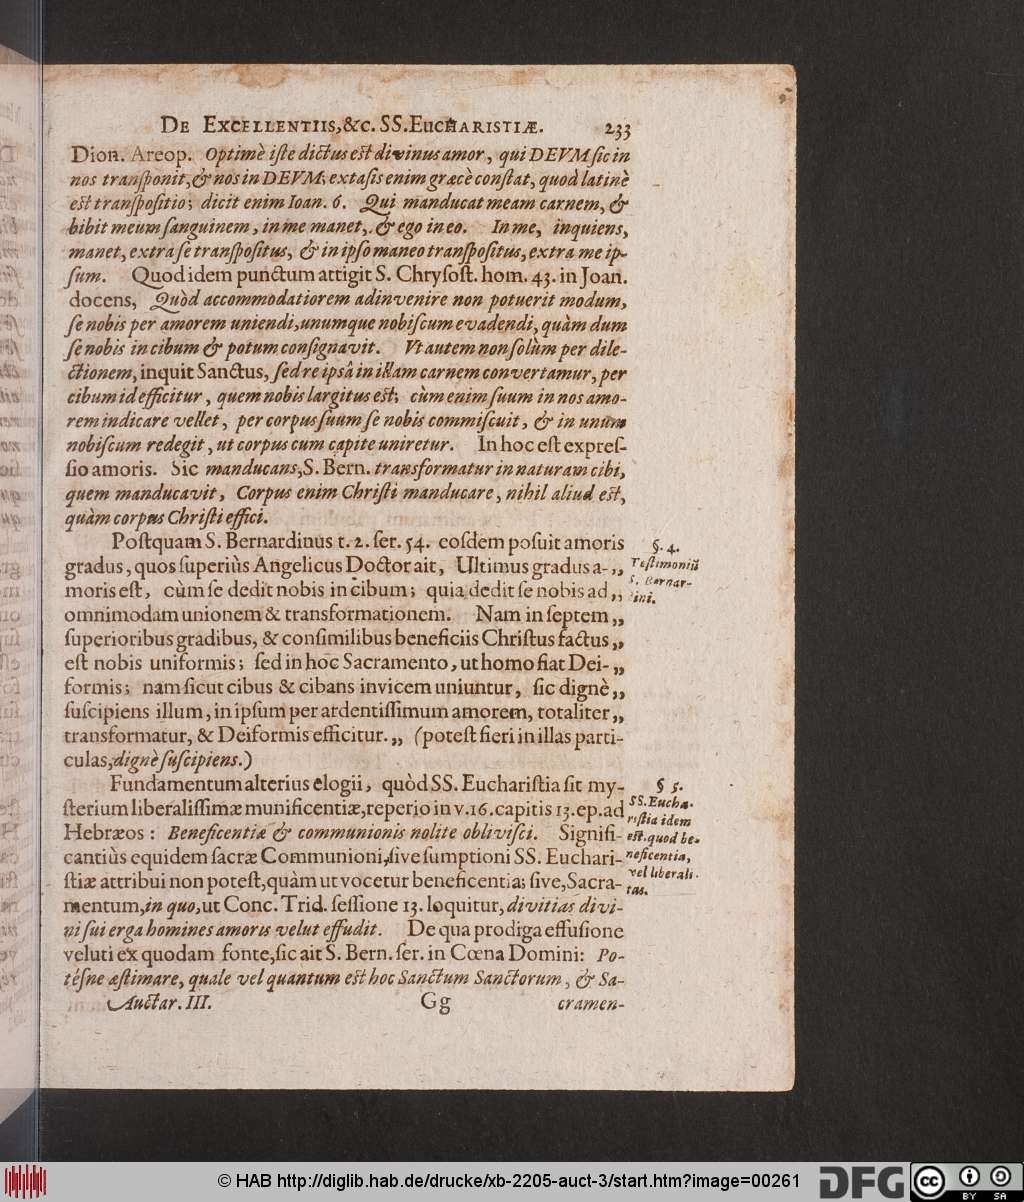 DE EXCELLENTIIS, &c. SS. EUCHARISTIÆ. 233
Dion. Areop. Optimè iſte dictus eſt divinus amor, qui DEVM ſic in
nos tranſponit, & nos in DEVM; extaſis enim græcè conſtat, quod latinè
eſt tranſpoſitio; dicit enim Ioan. 6. Qui manducat meam carnem, &
bibit meum ſanguinem, in me manet, & ego in eo. In me, inquiens,
manet, extra ſe tranſpoſitus, & in ipſo maneo tranſpoſitus, extra me ip-
ſum. Quod idem punctum attigit S. Chryſoſt. hom. 43. in Joan.
docens, Quòd accommodatiorem adinvenire non potuerit modum,
ſe nobis per amorem uniendi, unumque nobiſcum evadendi, quàm dum
ſe nobis in cibum & potum conſignavit. Vt autem non ſolùm per dile-
ctionem, inquit Sanctus, ſed re ipsâ in illam carnem convertamur, per
cibum id efficitur, quem nobis largitus eſt; cùm enim ſuum in nos amo-
rem indicare vellet, per corpus ſuum ſe nobis commiſcuit, & in unum
nobiſcum redegit, ut corpus cum capite uniretur. In hoc eſt expreſ-
ſio amoris. Sic manducans, S. Bern. transformatur in naturam cibi,
quem manducavit, Corpus enim Chriſti manducare, nihil aliud eſt,
quàm corpus Chriſti effici.
Poſtquam S. Bernardinus t. 2. ſer. 54. eoſdem poſuit amoris
gradus, quos ſuperiùs Angelicus Doctor ait, Ultimus gradus a- „
moris eſt, cùm ſe dedit nobis in cibum; quia dedit ſe nobis ad „
omnimodam unionem & transformationem. Nam in ſeptem „
ſuperioribus gradibus, & conſimilibus beneficiis Chriſtus factus „
eſt nobis uniformis; ſed in hoc Sacramento, ut homo fiat Dei- „
formis; nam ſicut cibus & cibans invicem uniuntur, ſic dignè „
ſuſcipiens illum, in ipſum per ardentiſſimum amorem, totaliter „
transformatur, & Deiformis efficitur. „ (poteſt fieri in illas parti-
culas, dignè ſuſcipiens.)
§. 4.
Teſtimoniũ
S. Bernar-
dini.
Fundamentum alterius elogii, quòd SS. Euchariſtia ſit my-
ſterium liberaliſſimæ munificentiæ, reperio in v. 16. capitis 13. ep. ad
Hebræos: Beneficentiæ & communionis nolite obliviſci. Signifi-
cantiùs equidem ſacræ Communioni, ſive ſumptioni SS. Euchari-
ſtiæ attribui non poteſt, quàm ut vocetur beneficentia; ſive, Sacra-
mentum, in quo, ut Conc. Trid. ſeſſione 13. loquitur, divitias divi-
ni ſui erga homines amoris velut effudit. De qua prodiga effuſione
veluti ex quodam fonte, ſic ait S. Bern. ſer. in Cœna Domini: Po-
téſne æſtimare, quale vel quantum eſt hoc Sanctum Sanctorum, & Sa-
§ 5.
SS. Eucha-
riſtia idem
eſt, quod be-
neficentia,
vel liberali-
tas.
Auctar. III. Gg cramen-
© HAB http://diglib.hab.de/drucke/xb-2205-auct-3/start.htm?image=00261
DFG
cc BY SA